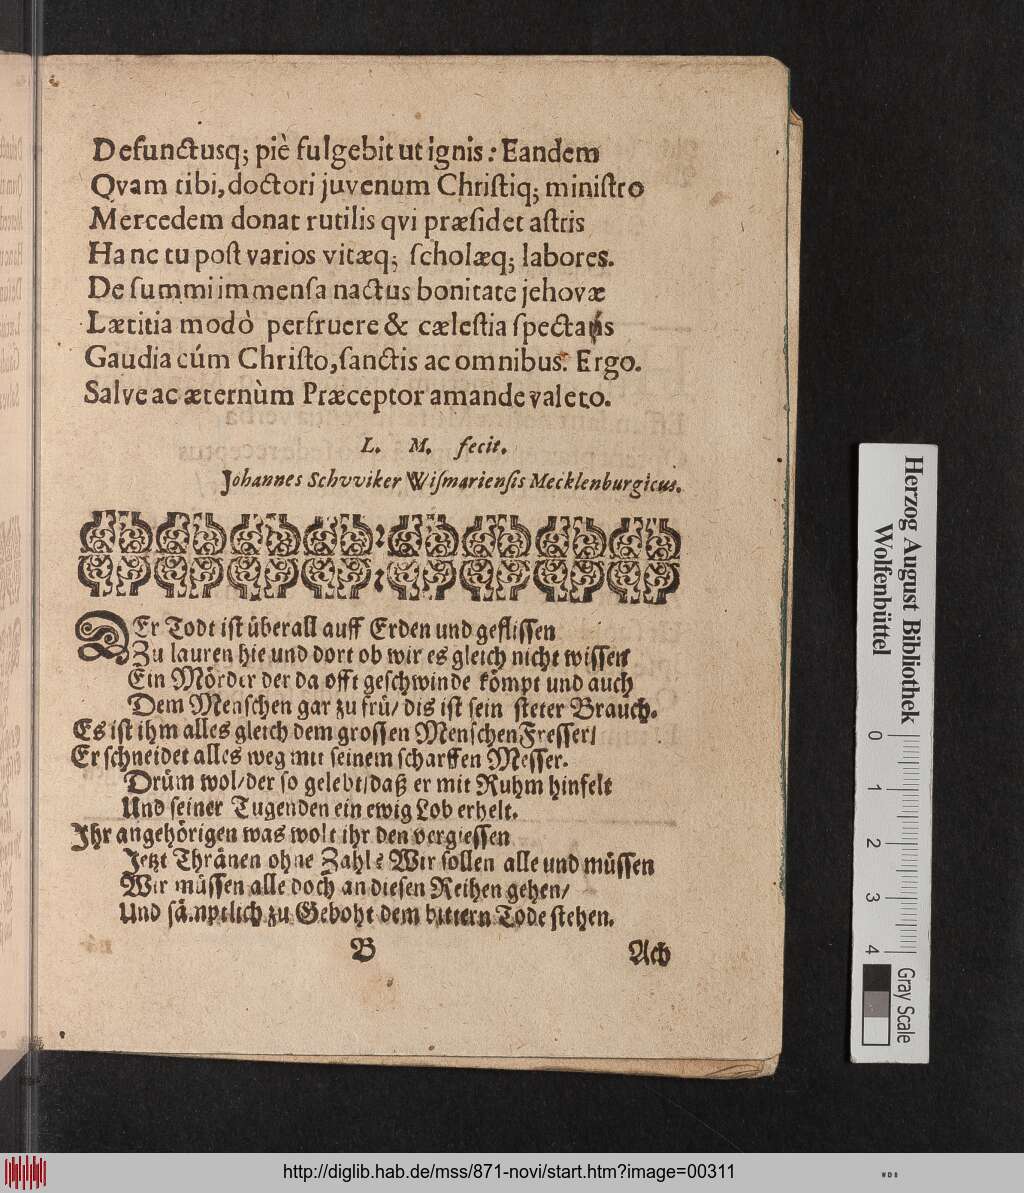 Defunctusq; piè fulgebit ut ignis: Eandem
Qvam tibi, doctori juvenum Christiq; ministro
Mercedem donat rutilis qvi præsidet astris
Hanc tu post varios vitæq; scholæq; labores.
De summi immensa nactus bonitate jehovæ
Lætitia modò perfruere & cælestia spectans
Gaudia cúm Christo, sanctis ac omnibus. Ergo.
Salve ac æternùm Præceptor amande valeto.
L. M. fecit.
Johannes Schvviker Wismariensis Mecklenburgicus.
DEr Todt ist überall auff Erden und geflissen
Zu lauren hie und dort ob wir es gleich nicht wissen
Ein Mörder der da offt geschwinde kömpt und auch
Dem Menschen gar zu frü/ dis ist sein steter Brauch.
Es ist ihm alles gleich dem grossen MenschenFresser/
Er schneidet alles weg mit seinem scharffen Messer.
Drüm wol/der so gelebt/daß er mit Ruhm hinfelt
Und seiner Tugenden ein ewig Lob erhelt.
Ihr angehörigen was wolt ihr den vergiessen
Jetzt Thränen ohne Zahl? Wir sollen alle und müssen
Wir müssen alle doch an diesen Reihen gehen/
Und sämptlich zu Geboht dem bittern Tode stehen.
B Ach
Herzog August Bibliothek
Wolfenbüttel
0 1 2 3 4
Gray Scale
http://diglib.hab.de/mss/871-novi/start.htm?image=00311
WDB